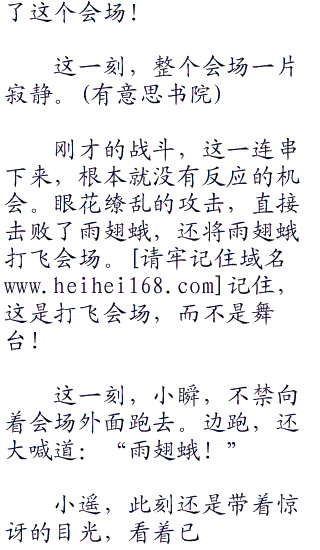 了这个会场！
这一刻，整个会场一片
寂静。(有意思书院)
刚才的战斗，这一连串
下来，根本就没有反应的机
会。眼花缭乱的攻击，直接
击败了雨翅蛾，还将雨翅蛾
打飞会场。[请牢记住域名
www.heihei168.com]记住，
这是打飞会场，而不是舞
台！
这一刻，小瞬，不禁向
着会场外面跑去。边跑，还
大喊道：“雨翅蛾！”
小遥，此刻还是带着惊
讶的目光，看着已